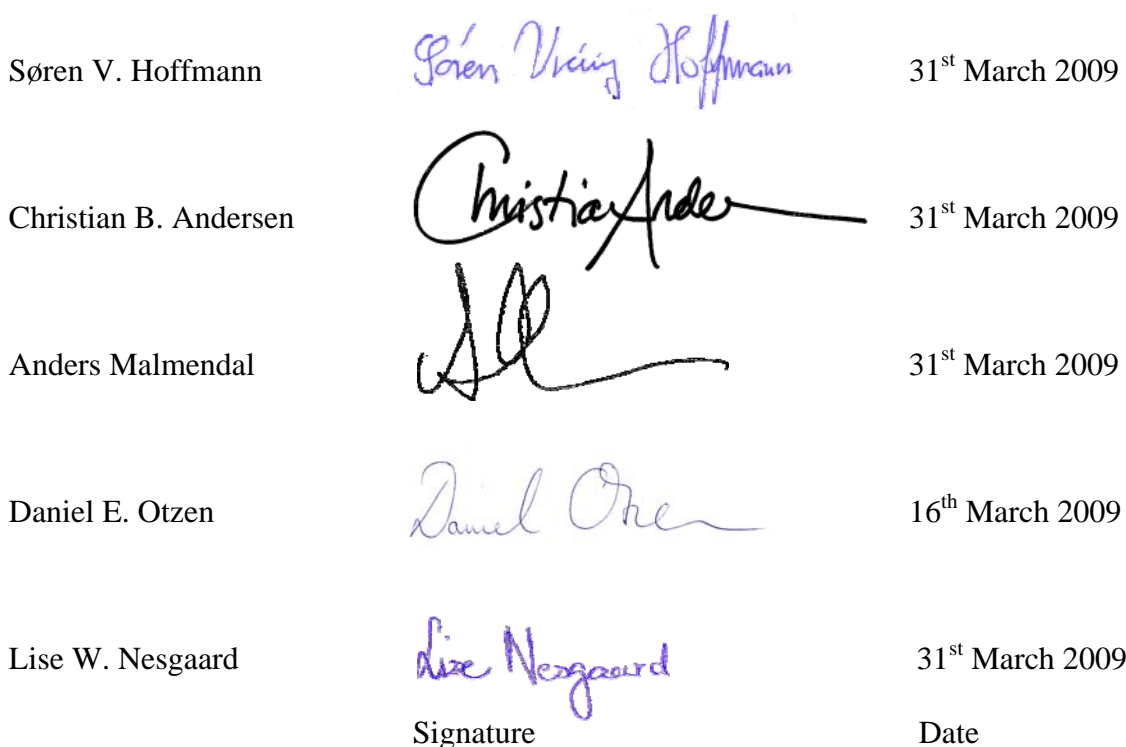 Søren V. Hoffmann Søren Vrønning Hoffmann 31st March 2009
Christian B. Andersen Christian Ander 31st March 2009
Anders Malmendal 31st March 2009
Daniel E. Otzen Daniel Otzen 16th March 2009
Lise W. Nesgaard Lise Nesgaard 31st March 2009
Signature Date